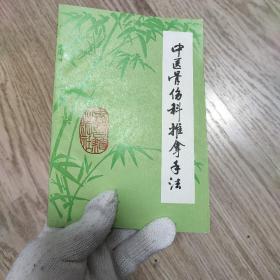 中医骨伤科推拿手法